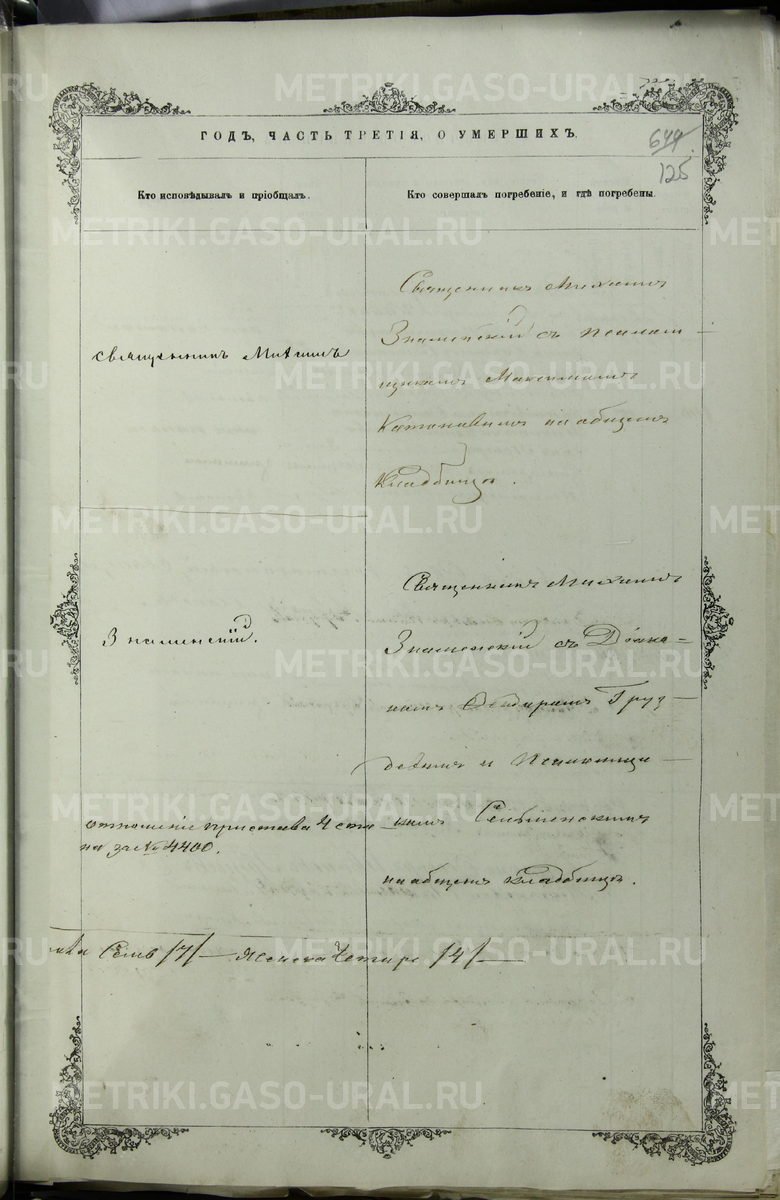 ГОДЪ, ЧАСТЬ ТРЕТІЯ, О УМЕРШИХЪ.
644
125
Кто исповѣдывалъ и пріобщалъ.
Кто совершалъ погребеніе, и гдѣ погребены.
Священникъ Михаилъ
Знаменскій.
отношеніе пристава 4 стана
за № 4400.
Священникъ Михаилъ
Знаменскій съ Псалом-
щикомъ Максимомъ
на общемъ
Кладбищѣ.
Священникъ Михаилъ
Знаменскій съ Діако-
номъ Груз-
девымъ и Псаломщи-
комъ
на общемъ Кладбищѣ.
Семь /7/ — Женска Четыре /4/ —
METRIKI.GASO-URAL.RU